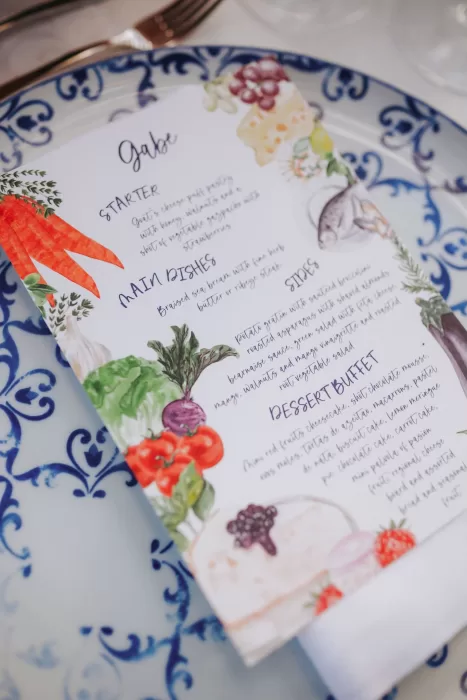 Gabe
STARTER
Goat's cheese puff pastry
with honey, walnuts and a
shot of vegetable gazpacho with
strawberries
MAIN DISHES
Braised sea bream with fine herb
butter or ribeye steak
SIDES
Potato gratin with sautéed broccolini,
roasted asparagus with shaved almonds
bearnaise sauce, green salad with feta cheese,
mango, walnuts and mango vinaigrette and roasted
root vegetable salad
DESSERT BUFFET
Mini red fruits cheesecake, shot chocolate mousse
com natas, tortas de azeitão, macarrons, pastel
de nata, biscuit cake, lemon meringue
pie, chocolate cake, carrot cake,
mini pavlova of passion
fruit, regional cheese
board and assorted
bread and seasonal
fruit